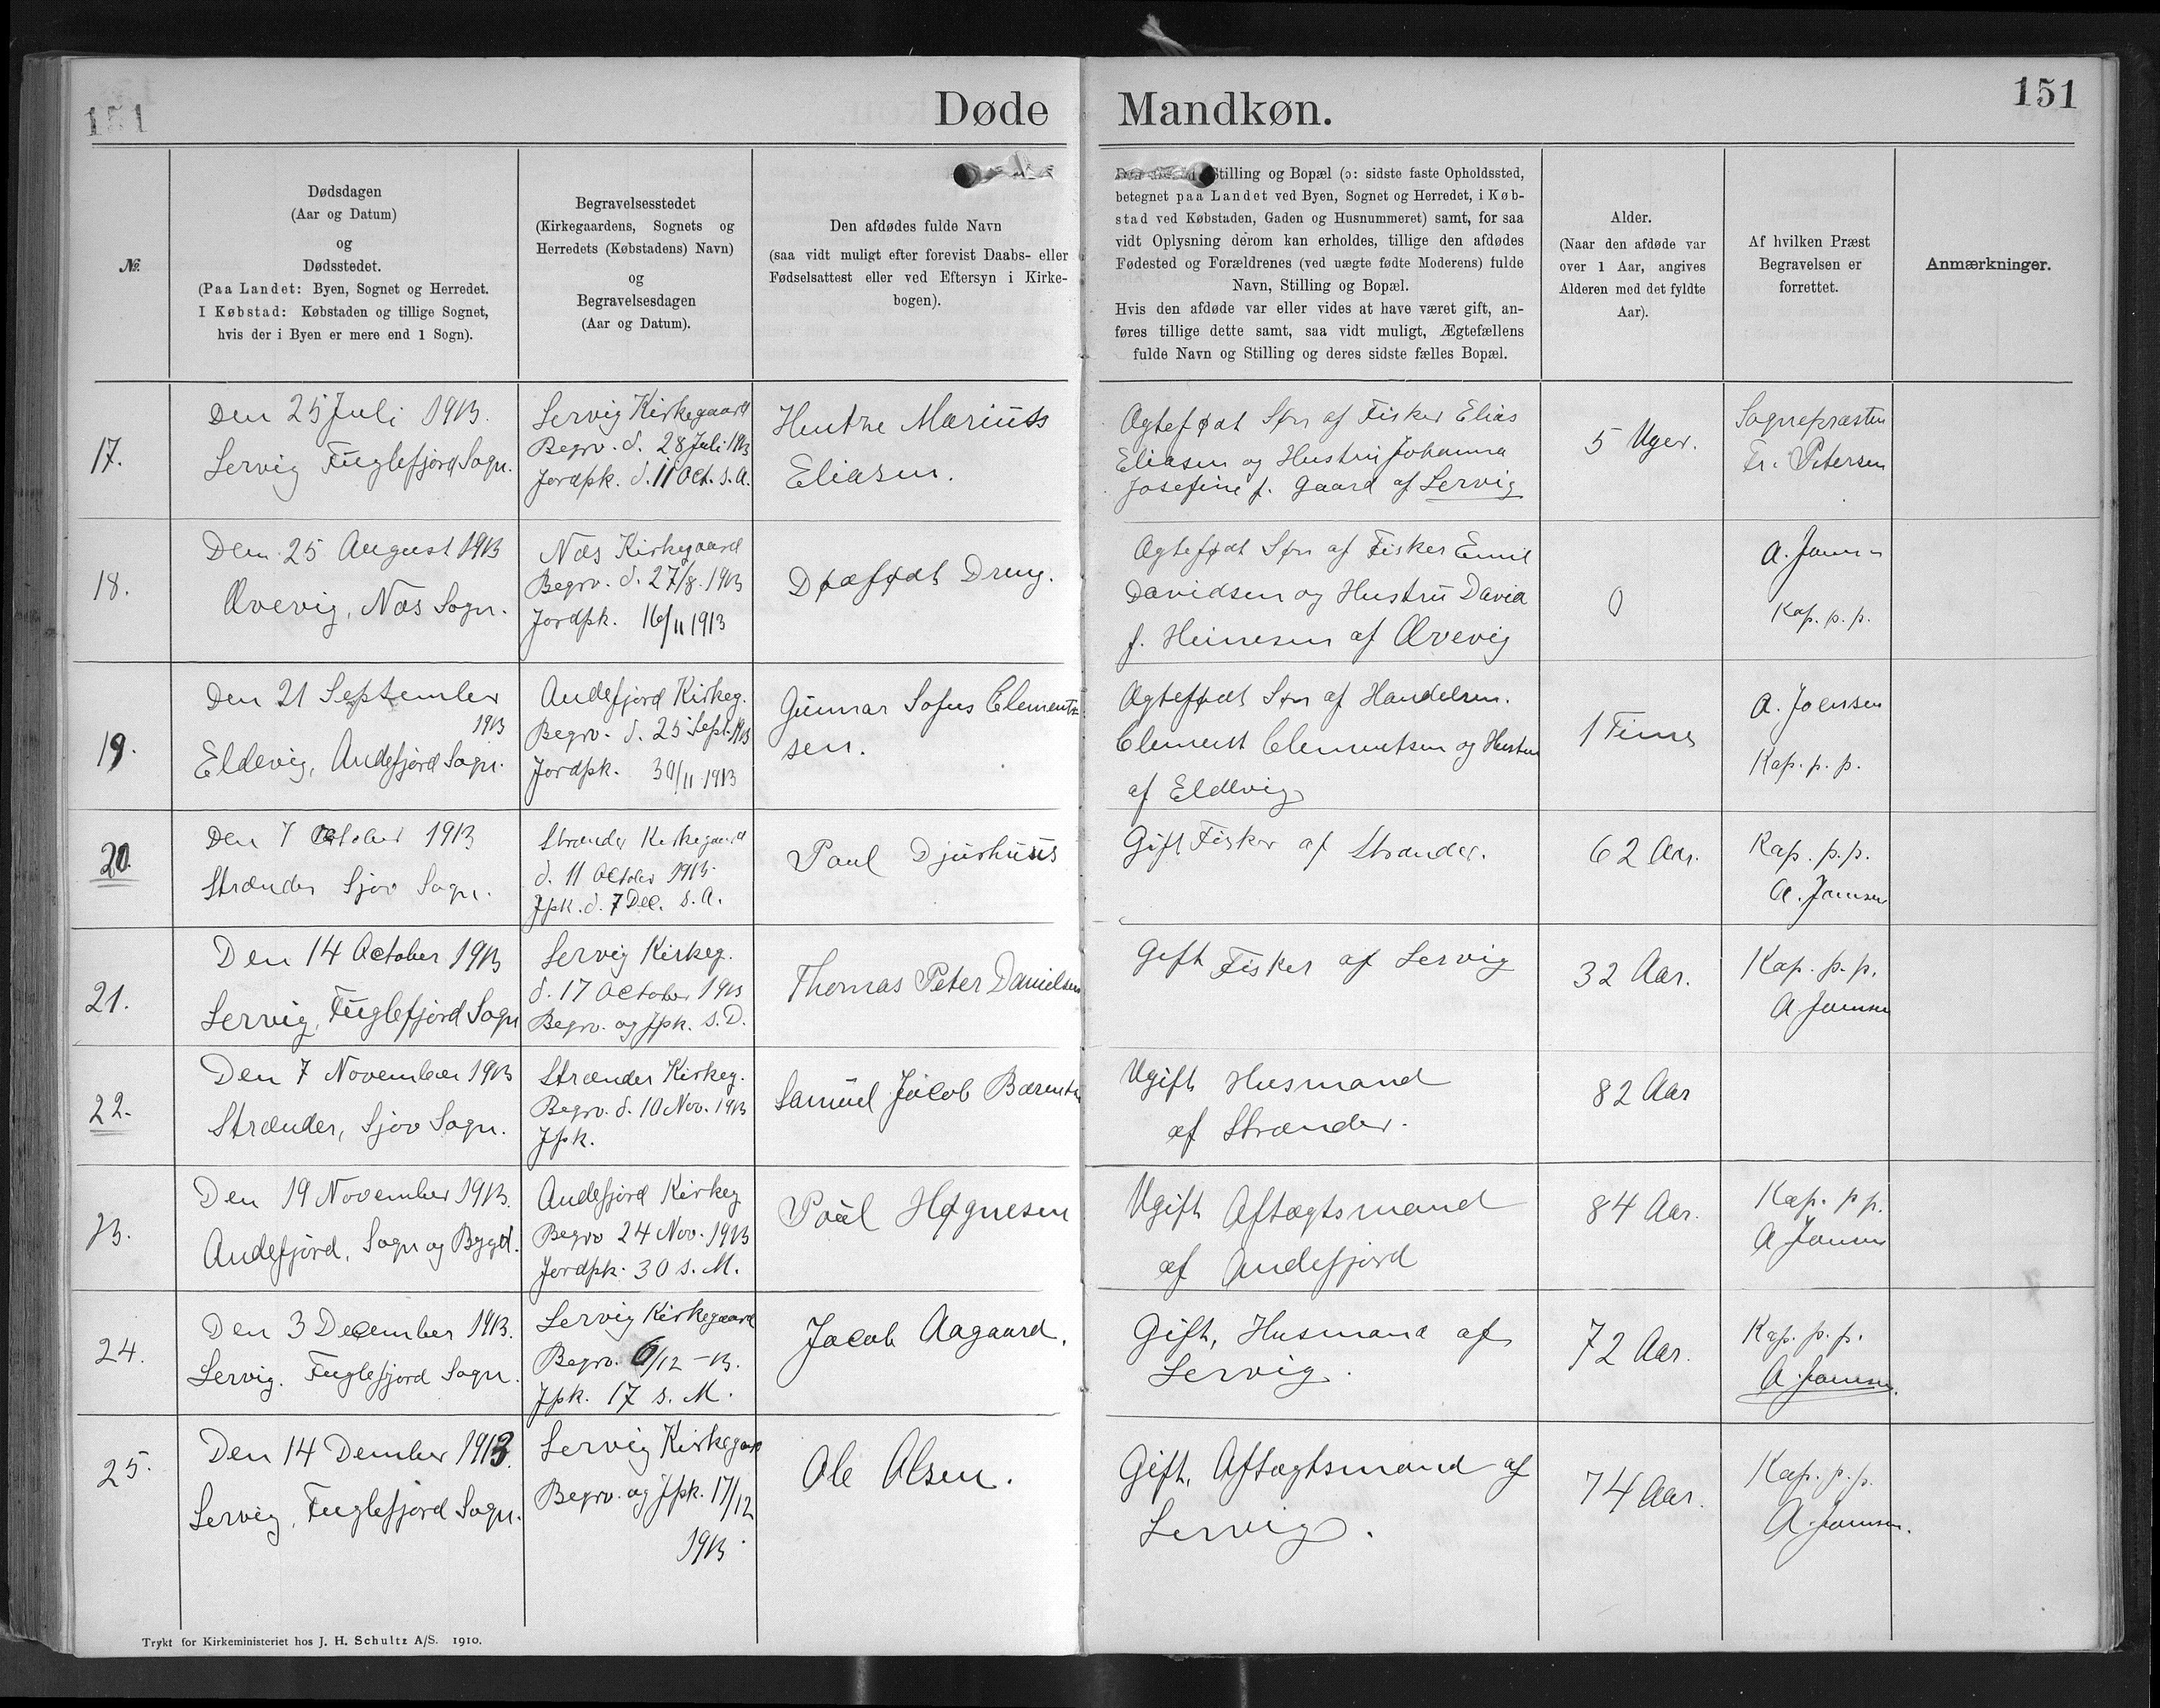 151
Døde Mandkøn.
151
№
Dødsdagen
(Aar og Datum)
og
Dødsstedet.
(Paa Landet: Byen, Sognet og Herredet.
I Købstad: Købstaden og tillige Sognet,
hvis der i Byen er mere end 1 Sogn).
Begravelsesstedet
(Kirkegaardens, Sognets og
Herredets (Købstadens) Navn)
og
Begravelsesdagen
(Aar og Datum).
Den afdødes fulde Navn
(saa vidt muligt efter forevist Daabs- eller
Fødselsattest eller ved Eftersyn i Kirke-
bogen).
Stilling og Bopæl (ɔ: sidste faste Opholdssted,
betegnet paa Landet ved Byen, Sognet og Herredet, i Køb-
stad ved Købstaden, Gaden og Husnummeret) samt, for saa
vidt Oplysning derom kan erholdes, tillige den afdødes
Fødested og Forældrenes (ved uægte fødte Moderens) fulde
Navn, Stilling og Bopæl.
Hvis den afdøde var eller vides at have været gift, an-
føres tillige dette samt, saa vidt muligt, Ægtefællens
fulde Navn og Stilling og deres sidste fælles Bopæl.
Alder.
(Naar den afdøde var
over 1 Aar, angives
Alderen med det fyldte
Aar).
Af hvilken Præst
Begravelsen er
forrettet.
Anmærkninger.
17.
Den 25 Juli 1913.
Lervig Fuglefjord Sogn.
Lervig Kirkegaard
Begrv. d. 28 Juli 1913
Jordpk. d. 11 Oct. s. A.
Marius
Eliasen.
Ægtefødt Søn af Fisker Elias
Eliasen og Hustru Johanna
Josefine f. Gaard af Lervig
5 Uger.
Sognepræsten
Fr. Petersen
18.
Den 25 August 1913
Ørevig, Næs Sogn.
Næs Kirkegaard
Begrv. d. 27/8. 1913
Jordpk. 16/11 1913
Dødfødt Dreng.
Ægtefødt Søn af Fisker Emil
Davidsen og Hustru David
f. Heinesen af Ørevig
0
A. Joensen
Kap. p. p.
19.
Den 21 September
1913
Eldevig, Andefjord Sogn.
Andefjord Kirkeg.
Begrv. d. 25 Sept. 1913
Jordpk. 30/11 1913
Gunnar Sofus Clement-
sen.
Ægtefødt Søn af Handelsm.
Clement Clementsen og Hustru
af Eldevig
1 Time
A. Joensen
Kap. p. p.
20.
Den 7 October 1913
Strænder Sjov Sogn.
Strænder Kirkegaard
d. 11 October 1913.
Jpk. d. 7 Dec. s. A.
Poul Djurhuus
Gift Fisker af Strænder.
62 Aar.
Kap. p. p.
A. Joensen
21.
Den 14 October 1913
Lervig, Fuglefjord Sogn
Lervig Kirkeg.
d. 17 October 1913
Begrv. og Jpk. s. D.
Thomas Peter Danielsen
Gift Fisker af Lervig
32 Aar.
Kap. p. p.
A Joensen
22.
Den 7 November 1913
Strænder, Sjov Sogn.
Strænder Kirkeg.
Begrv. d. 10 Nov. 1913
Jpk.
Samuel Jacob Bærentsen
Ugift Husmand
af Strænder.
82 Aar
23.
Den 19 November 1913.
Andefjord, Sogn og Bygd.
Andefjord Kirkeg
Begrv 24 Nov. 1913
Jordpk. 30 s. M.
Poul Høgnesen
Ugift Aftægtsmand
af Andefjord
84 Aar.
Kap. p p.
A Joensen
24.
Den 3 December 1913.
Lervig. Fuglefjord Sogn.
Lervig Kirkegaard
Begrv. 6/12 - 13.
Jpk. 17 s. M.
Jacob Aagaard.
Gift, Husmand af
Lervig.
72 Aar.
Kap. p. p.
A. Joensen.
25.
Den 14 Dember 1913.
Lervig, Fuglefjord Sogn.
Lervig Kirkegaard
Begrv. og Jpk. 17/12
1913.
Ole Olsen.
Gift, Aftægtsmand af
Lervig.
74 Aar.
Kap. p. p.
A. Joensen.
Trykt for Kirkeministeriet hos J. H. Schultz A/S. 1910.